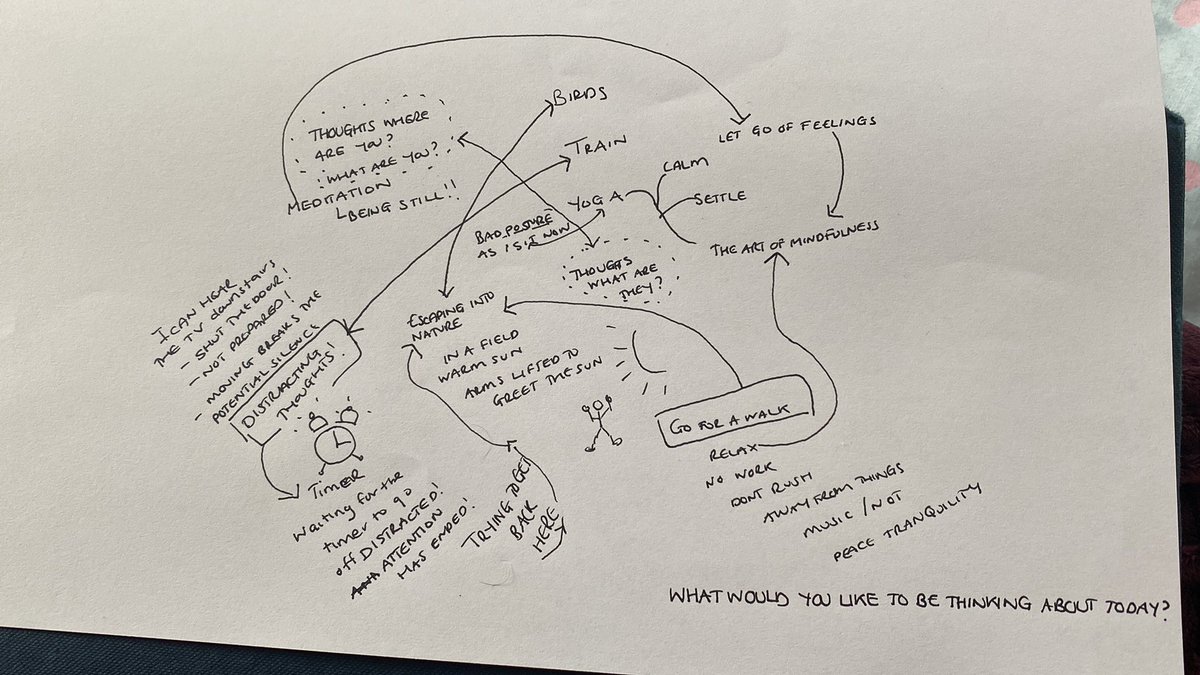 BIRDS
THOUGHTS WHERE
ARE YOU?
WHAT ARE YOU?
MEDITATION
BEING STILL!!
TRAIN
LET GO OF FEELINGS
CALM
YOGA
SETTLE
BAD POSTURE
AS I SIT NOW
THE ART OF MINDFULNESS
THOUGTS
WHAT ARE
THEY?
I CAN HEAR
THE TV downstairs
- SHUT THE DOOR!
- NOT PREPARED!
- MOVING BREAKS THE
POTENTIAL SILENCE
DISTRACTING
THOUGHTS!
ESCAPING INTO
NATURE
IN A FIELD
WARM SUN
ARMS LIFTED TO
GREET THE SUN
GO FOR A WALK
RELAX
NO WORK
DONT RUSH
AWAY FROM THINGS
MUSIC / NOT
PEACE TRANQUILITY
TIMER
Waiting for the
timer to go
off DISTRACTED!
ATTENTION
HAS ENDED!
TRYING TO GET
BACK
HERE
WHAT WOULD YOU LIKE TO BE THINKING ABOUT TODAY?